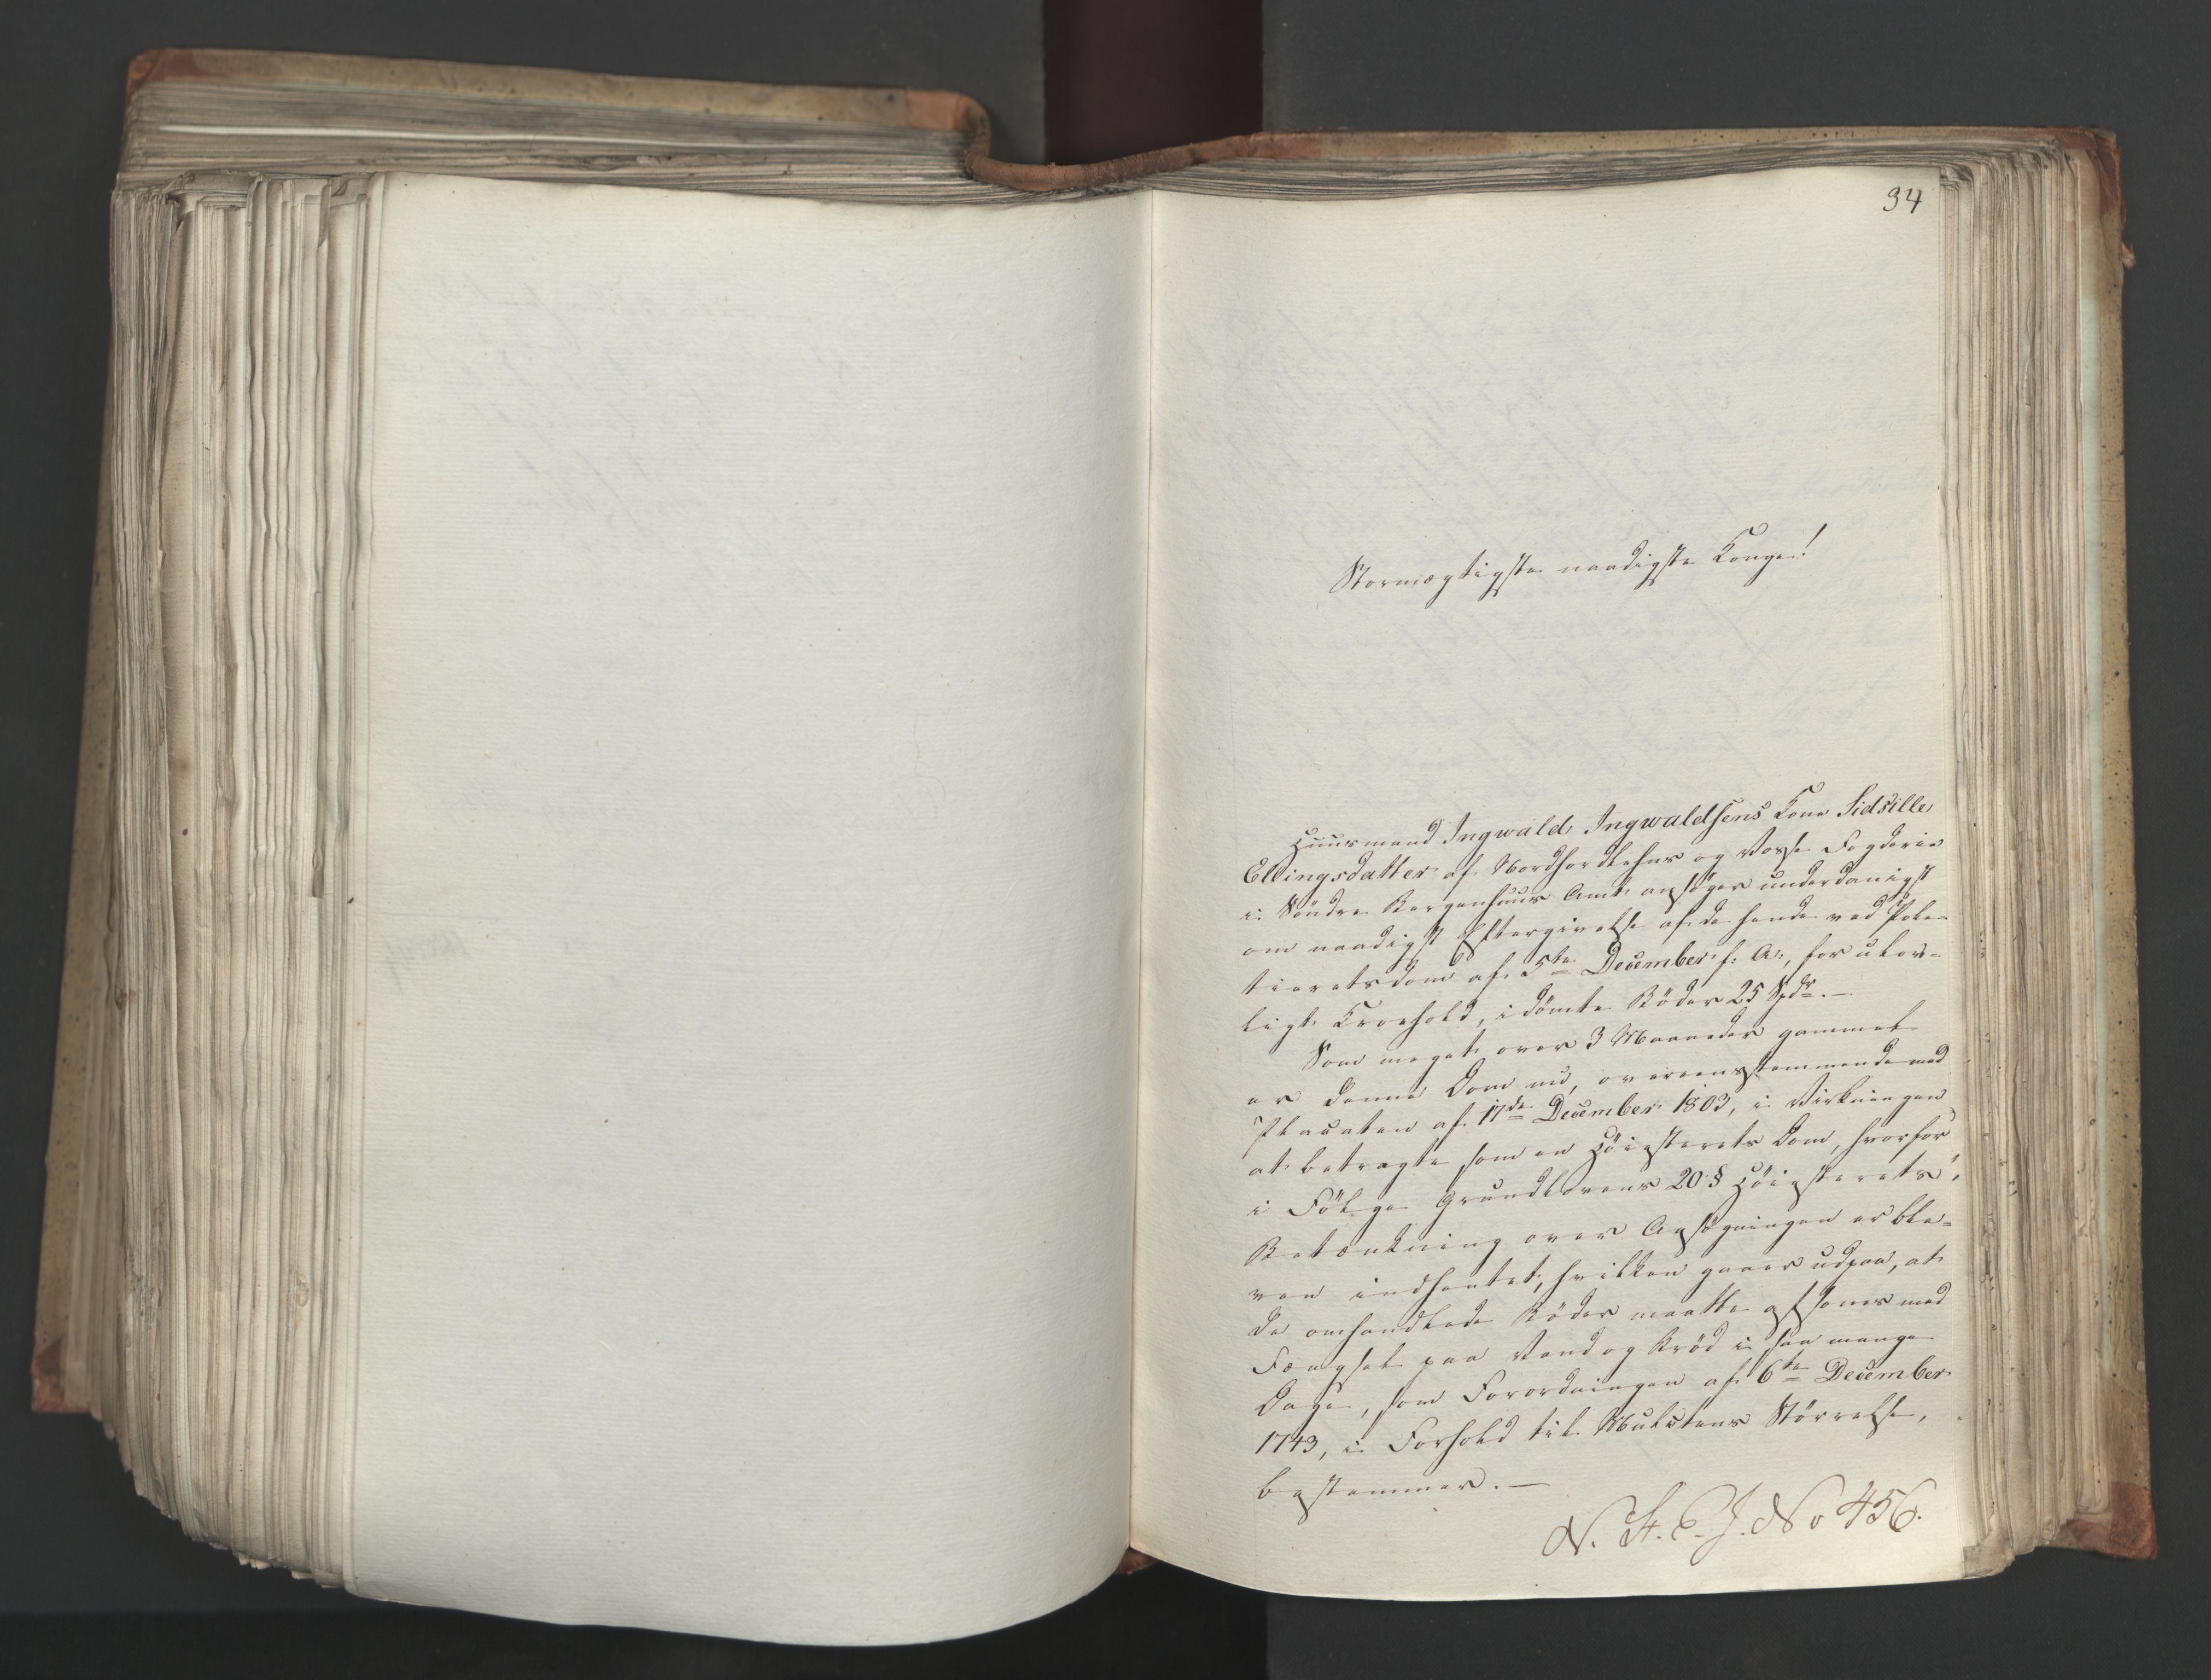 94
Stormægtigste naadigste Konge!
Huusmand Ingwald Ingwaldsens Kone Sidsille
Ellingsdatter af Nordhordlehns og Vosse Fogderie
i Söndre Bergenhuus Amt ansöger underdanigst
om naadigst Eftergivelse af de hende ved Poli-
tieretsdom af 5te December f: A:, for ulov-
ligt Kroehold, idömte Böder 25 Spdr. —
Som meget over 3 Maaneder gammel
er denne Dom nu, overeensstemmende med
Placaten af 17de December 1803, i Virkningen
at betragte som en Höiesterets Dom, hvorfor
i Fölge Grundlovens 20 § Höiesterets
Betænkning over Ansögningen er ble-
ven indhentet, hvilken gaaer udpaa, at
de omhandlede Böder maatte afsones med
Fængsel paa Vand og Bröd i saa mange
Dage, som Forordningen af 6te December
1743, i Forhold til Mulctens Störrelse,
bestemmer. —
N. St. E. J. No 456.